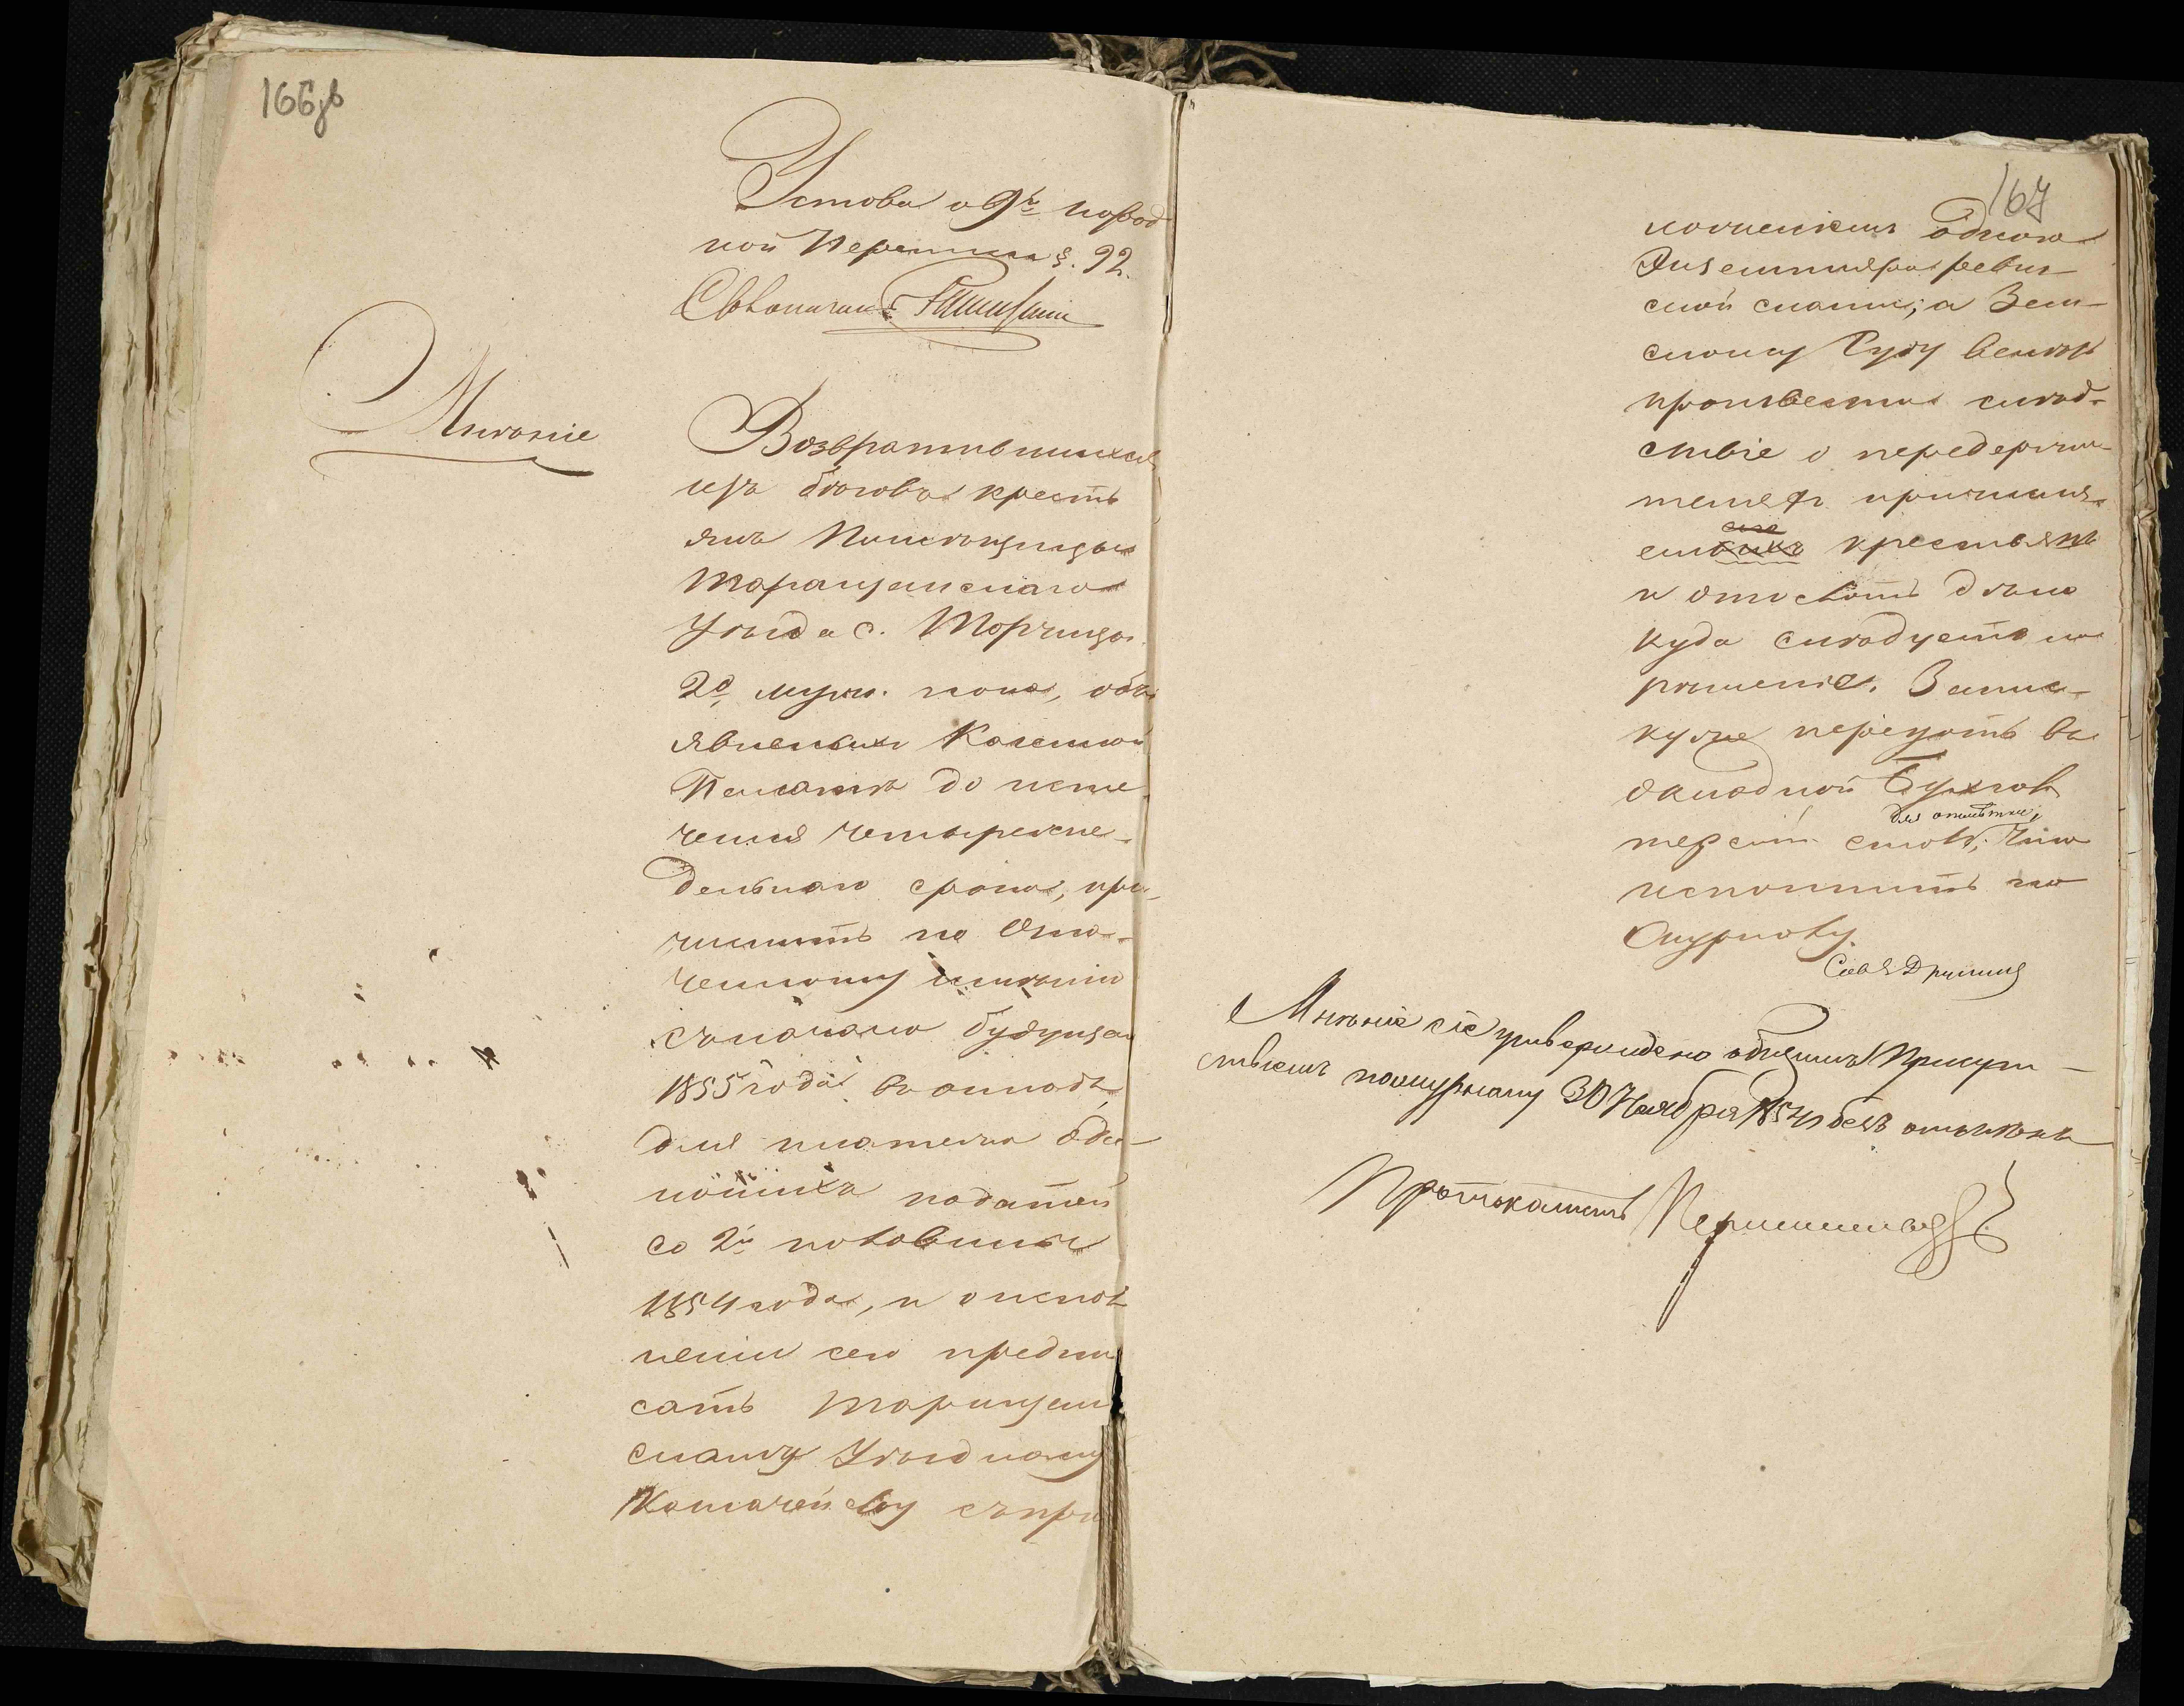 166об
Устава о 9й народ
ной Переписи §. 92.
Столоначальн:
Мнѣніе
Возвратившихся
изъ бѣговъ крестъ
янъ Помѣщицы
Таращанскаго
Уѣзда с. Торчица
2е муж. пола, объ
явленныхъ Казенной
Палатѣ до исте
ченія четырехне-
дельнаго срока, при
числить по Озна-
ченному имѣнію
съ начала будущаго
1855 года въ окладъ
для платежа ода
податей
со 2й половины
1854 года, и о испол
неніи сего предпи
сать Таращан
скому Уѣздному
Казначейству съ при
167
ложеніемъ одного
Экземпляра ревиз
ской сказки; а Зем-
скому Суду велѣть
произвести слѣд-
ствіе о передержа-
теляхъ причислен-
сихъ крестьянъ
и отослать дѣло
куда слѣдуетъ на
рѣшеніе. Запис-
ку же передать въ
окладной Бухгал
для отмѣтки,
терскій столъ, Что
исполнить по
Журналу
Мнѣніе сіе утверждено общимъ Присут-
ствіемъ по журналу 30 Ноября 1854 безъ отмѣнъ
Протоколистъ